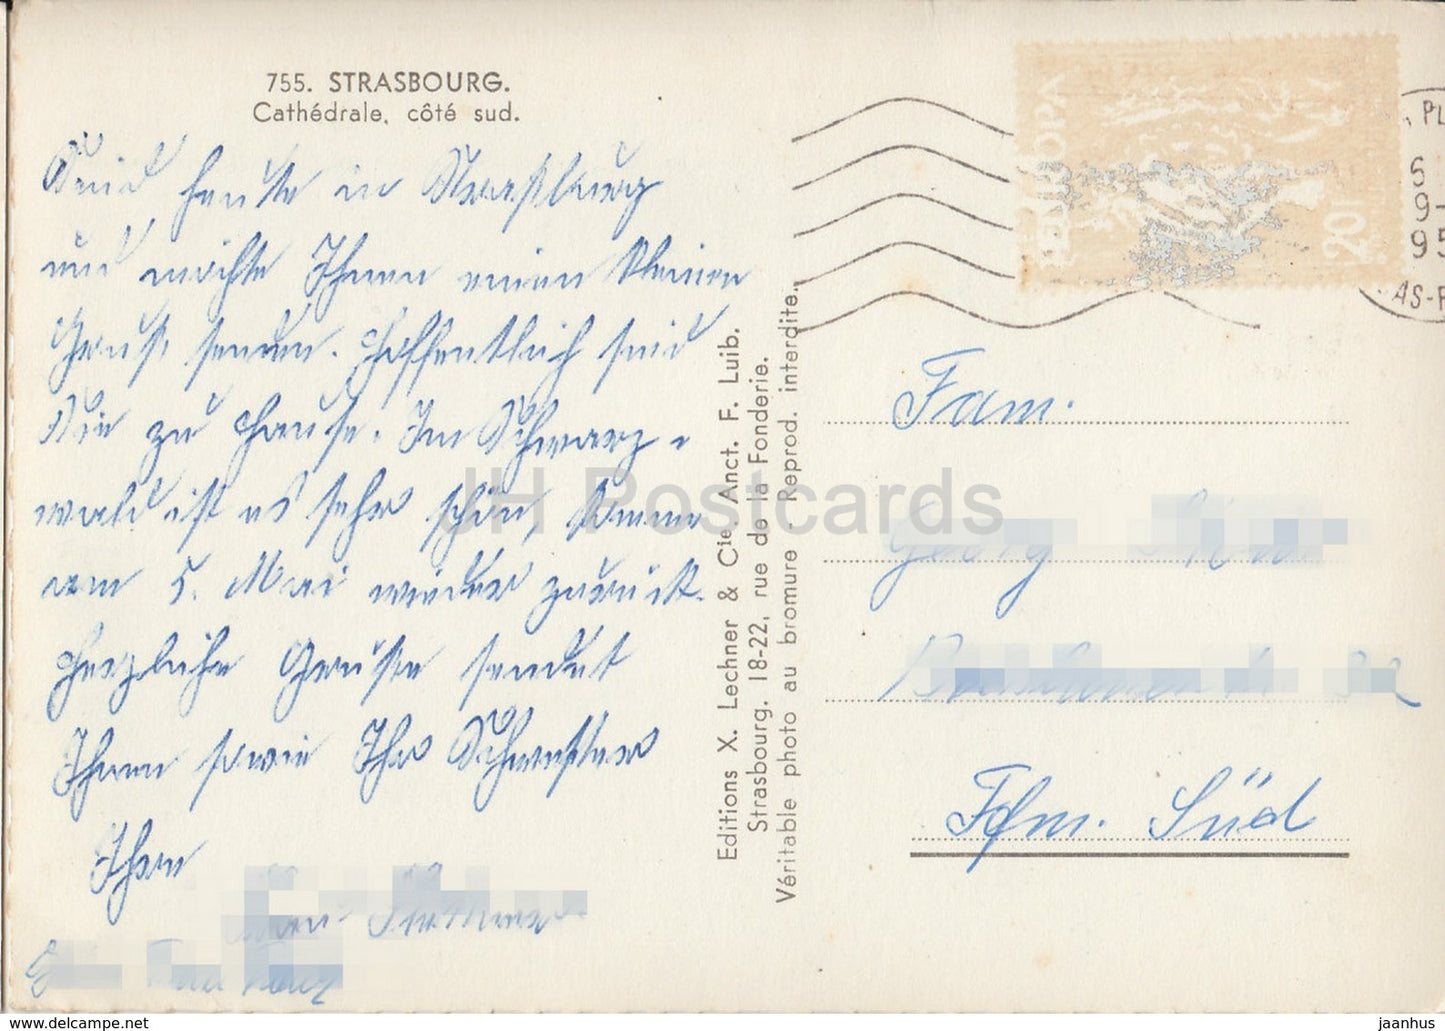 755. STRASBOURG.
Cathédrale, côté sud.
Sind heute in Strassburg
und möchte Ihnen einen kleinen
Gruß senden. Hoffentlich sind
Sie zu Hause. Im Schwarz-
wald ist es sehr schön, komme
am 5. Mai wieder zurück.
Herzliche Grüße sendet
Ihnen sowie Ihr Schwester
Ihr
Editions X. Lechner & Cie. Anct. F. Luib.
Strasbourg. 18-22, rue de la Fonderie.
Véritable photo au bromure - Reprod. interdite.
EUROPA
20f
PL
6
9-
95
AS-R
Fam.
Georg
Ffm. Süd
JH Postcards
www.delcampe.net
jaanhus